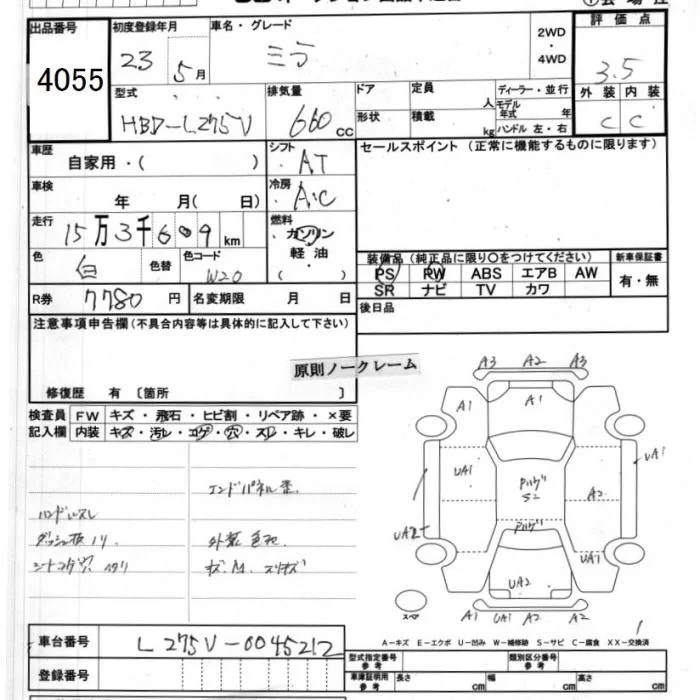 出品番号 初度登録年月 車名・グレード 2WD・4WD 評価点
4055 23 5月 ミラ 3.5
型式 排気量 ドア 定員 人 ディーラー・並行 外装 内装
HBD-L275V 660cc 形状 積載 kg モデル年式 年 ハンドル 左・右 C C
車歴 自家用・( ) シフト AT セールスポイント (正常に機能するものに限ります)
車検 年 月( 日) 冷房 A・C
走行 15万3千609km 燃料 ガソリン 軽油・( )
色 白 色替 色コード W20
装備品 (純正品に限り〇をつけてください) 新車保証書
PS PW ABS エアB AW 有・無
SR ナビ TV カワ
R券 7780円 名変期限 月 日 後日品
注意事項申告欄(不具合内容等は具体的に記入して下さい)
原則ノークレーム
修復歴 有 〔箇所 〕
検査員記入欄 FW キズ・飛石・ヒビ割・リペア跡・×要
内装 キズ・汚レ・コゲ・穴・スレ・キレ・破レ
エンドパネル歪
ハンドルスレ
外装色
A3 A2 A3
A1 A1
UA1 UA1
S2 A2
UA1
UA2
A1 UA1 A2 A1
スペア
A-キズ E-エクボ U-凹み W-補修跡 S-サビ C-腐食 XX-交換済
車台番号 L275V-0045212
型式指定番号 参考 類別区分番号 参考
登録番号 車庫証明用 参考 長さ cm 幅 cm 高さ cm